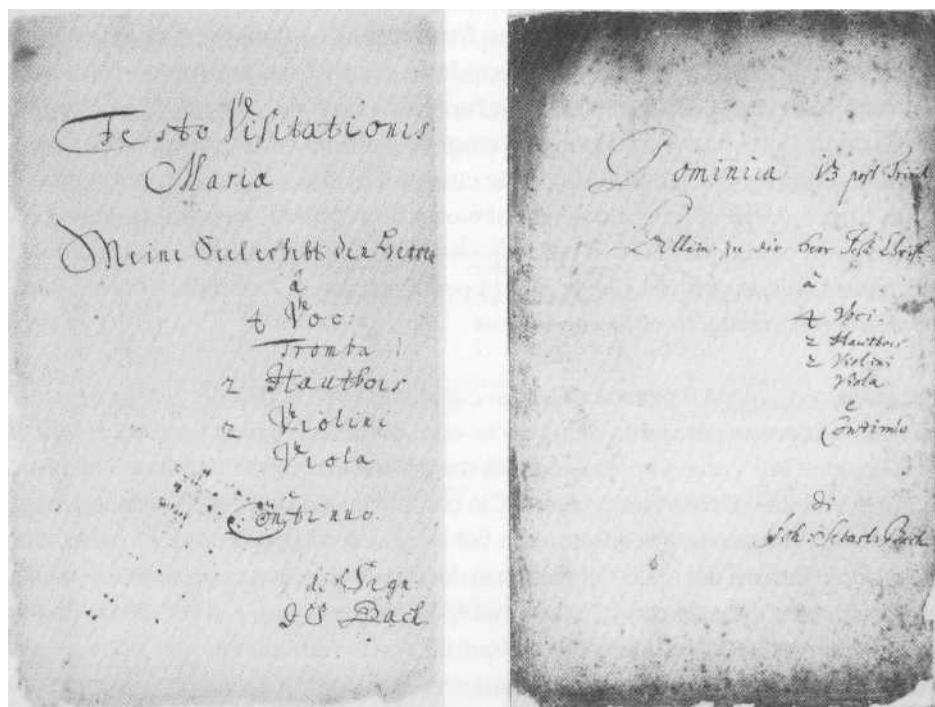 Festo Visitationis
Maria
Meine Seel erhebt den Herren
à
4 Voc:
Tromba
2 Hautbois
2 Violini
Viola
Continuo.
di Sigr
J S Bach
Dominica 13 post Trinit
Allein zu dir Herr Jesu Christ
à
4 Voci.
2 Hautbois
2 Violini
Viola
e
Continuo
di
Joh: Sebast: Bach